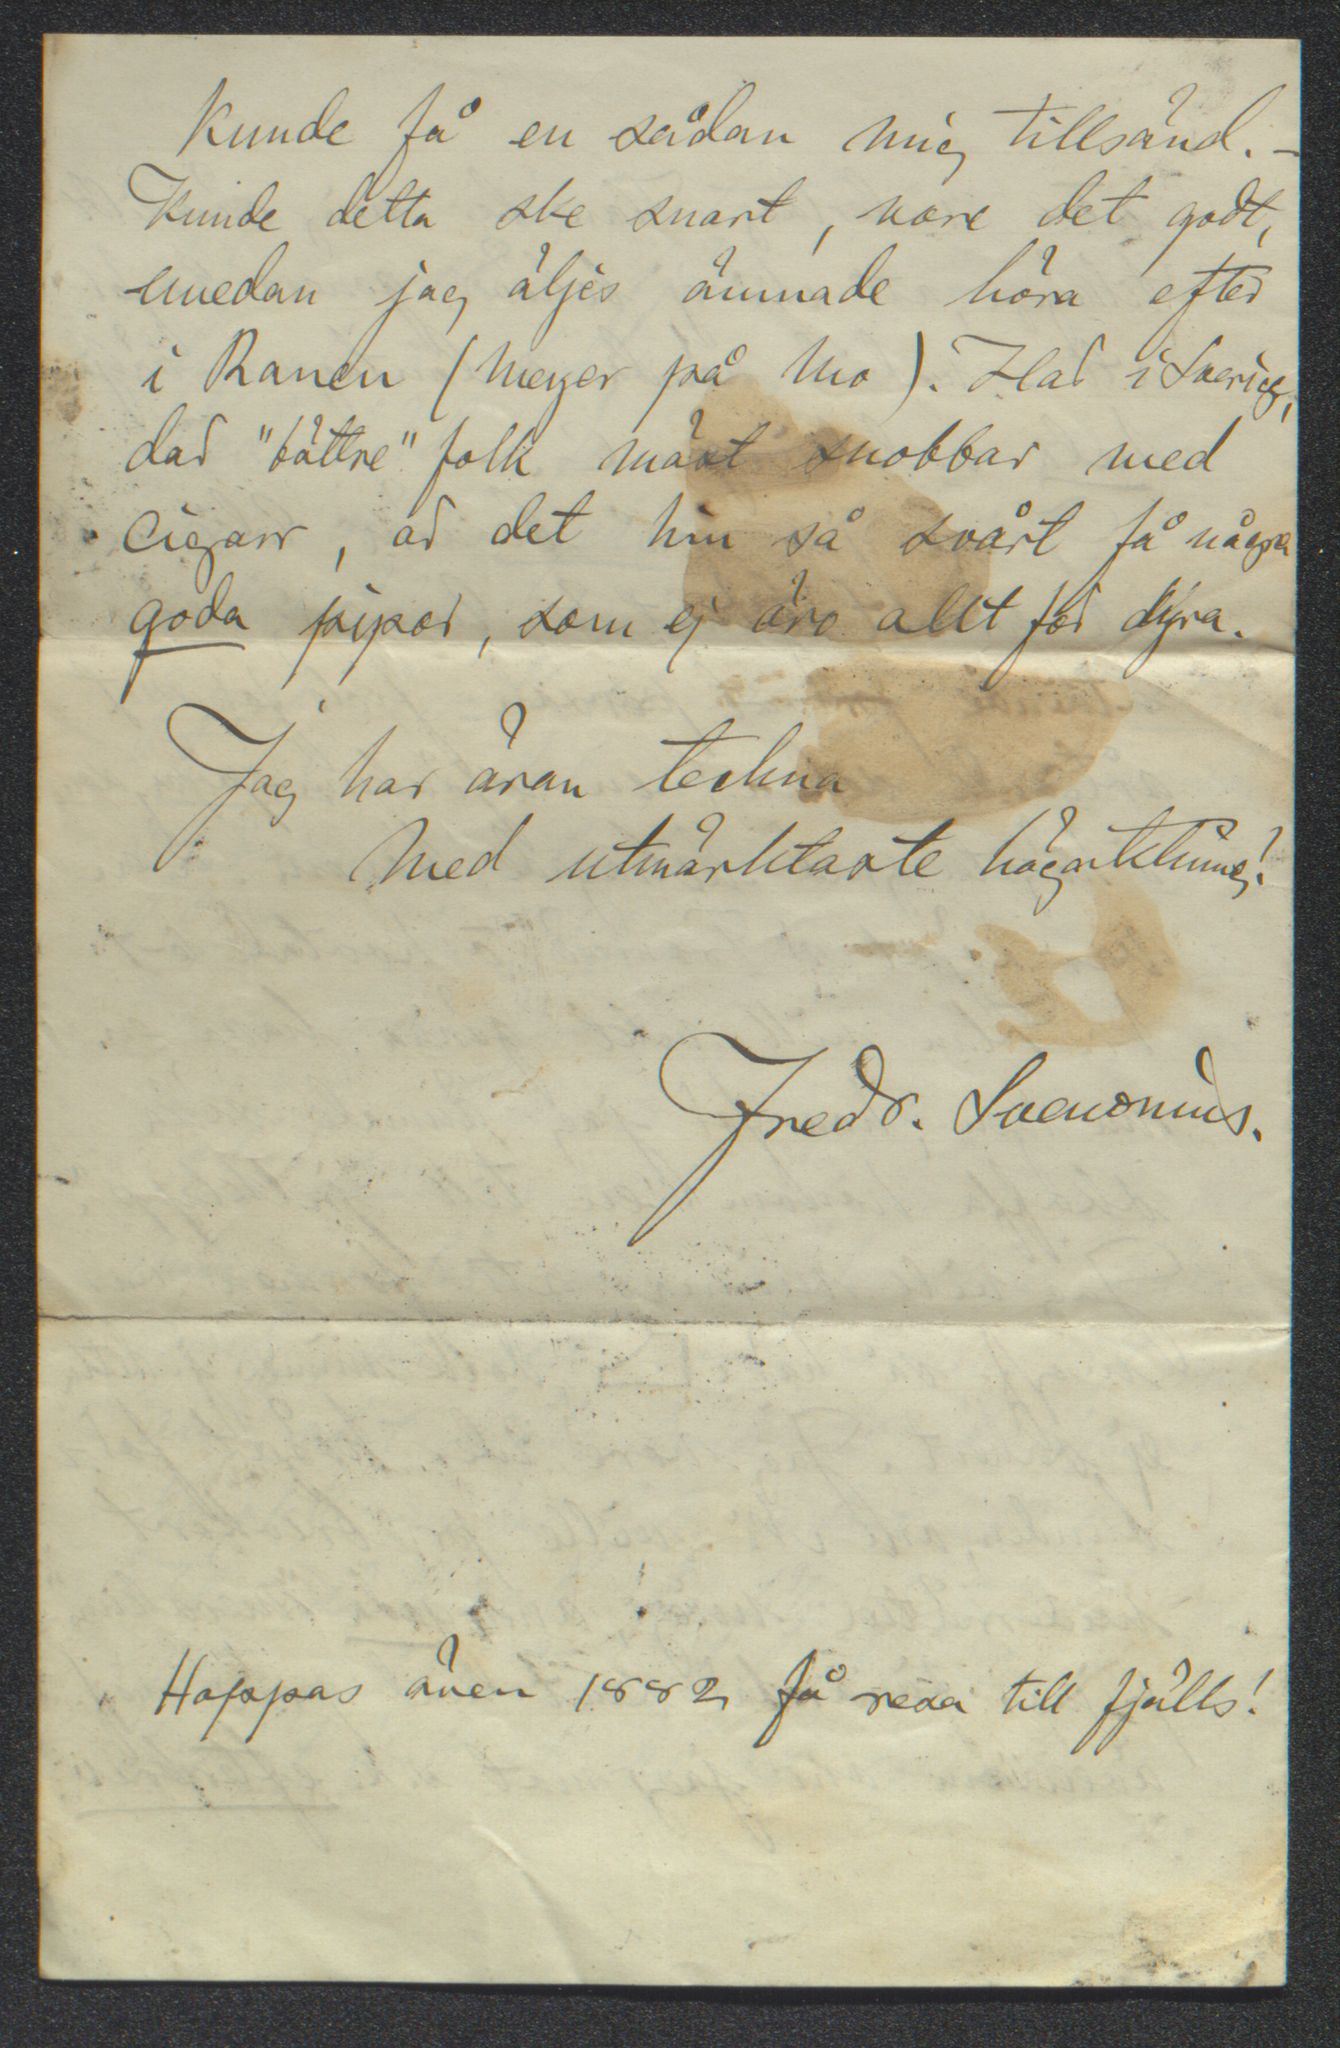 kunde få en sådan mig tillsänd. –
Kunde detta ske snart, vore det godt,
emedan jag äljes ämnade höra efter
i Ranen (Meyer på Mo). Här i Sverige,
der "bättre" folk mäst snobbar med
cigarr, är det så svårt få några
goda pipor, som ej äro allt för dyra.
Jag har äran teckna
Med utmärktaste högaktning!
Fredr. Svenonius.
Hoppas även 1882 få resa till fjälls!